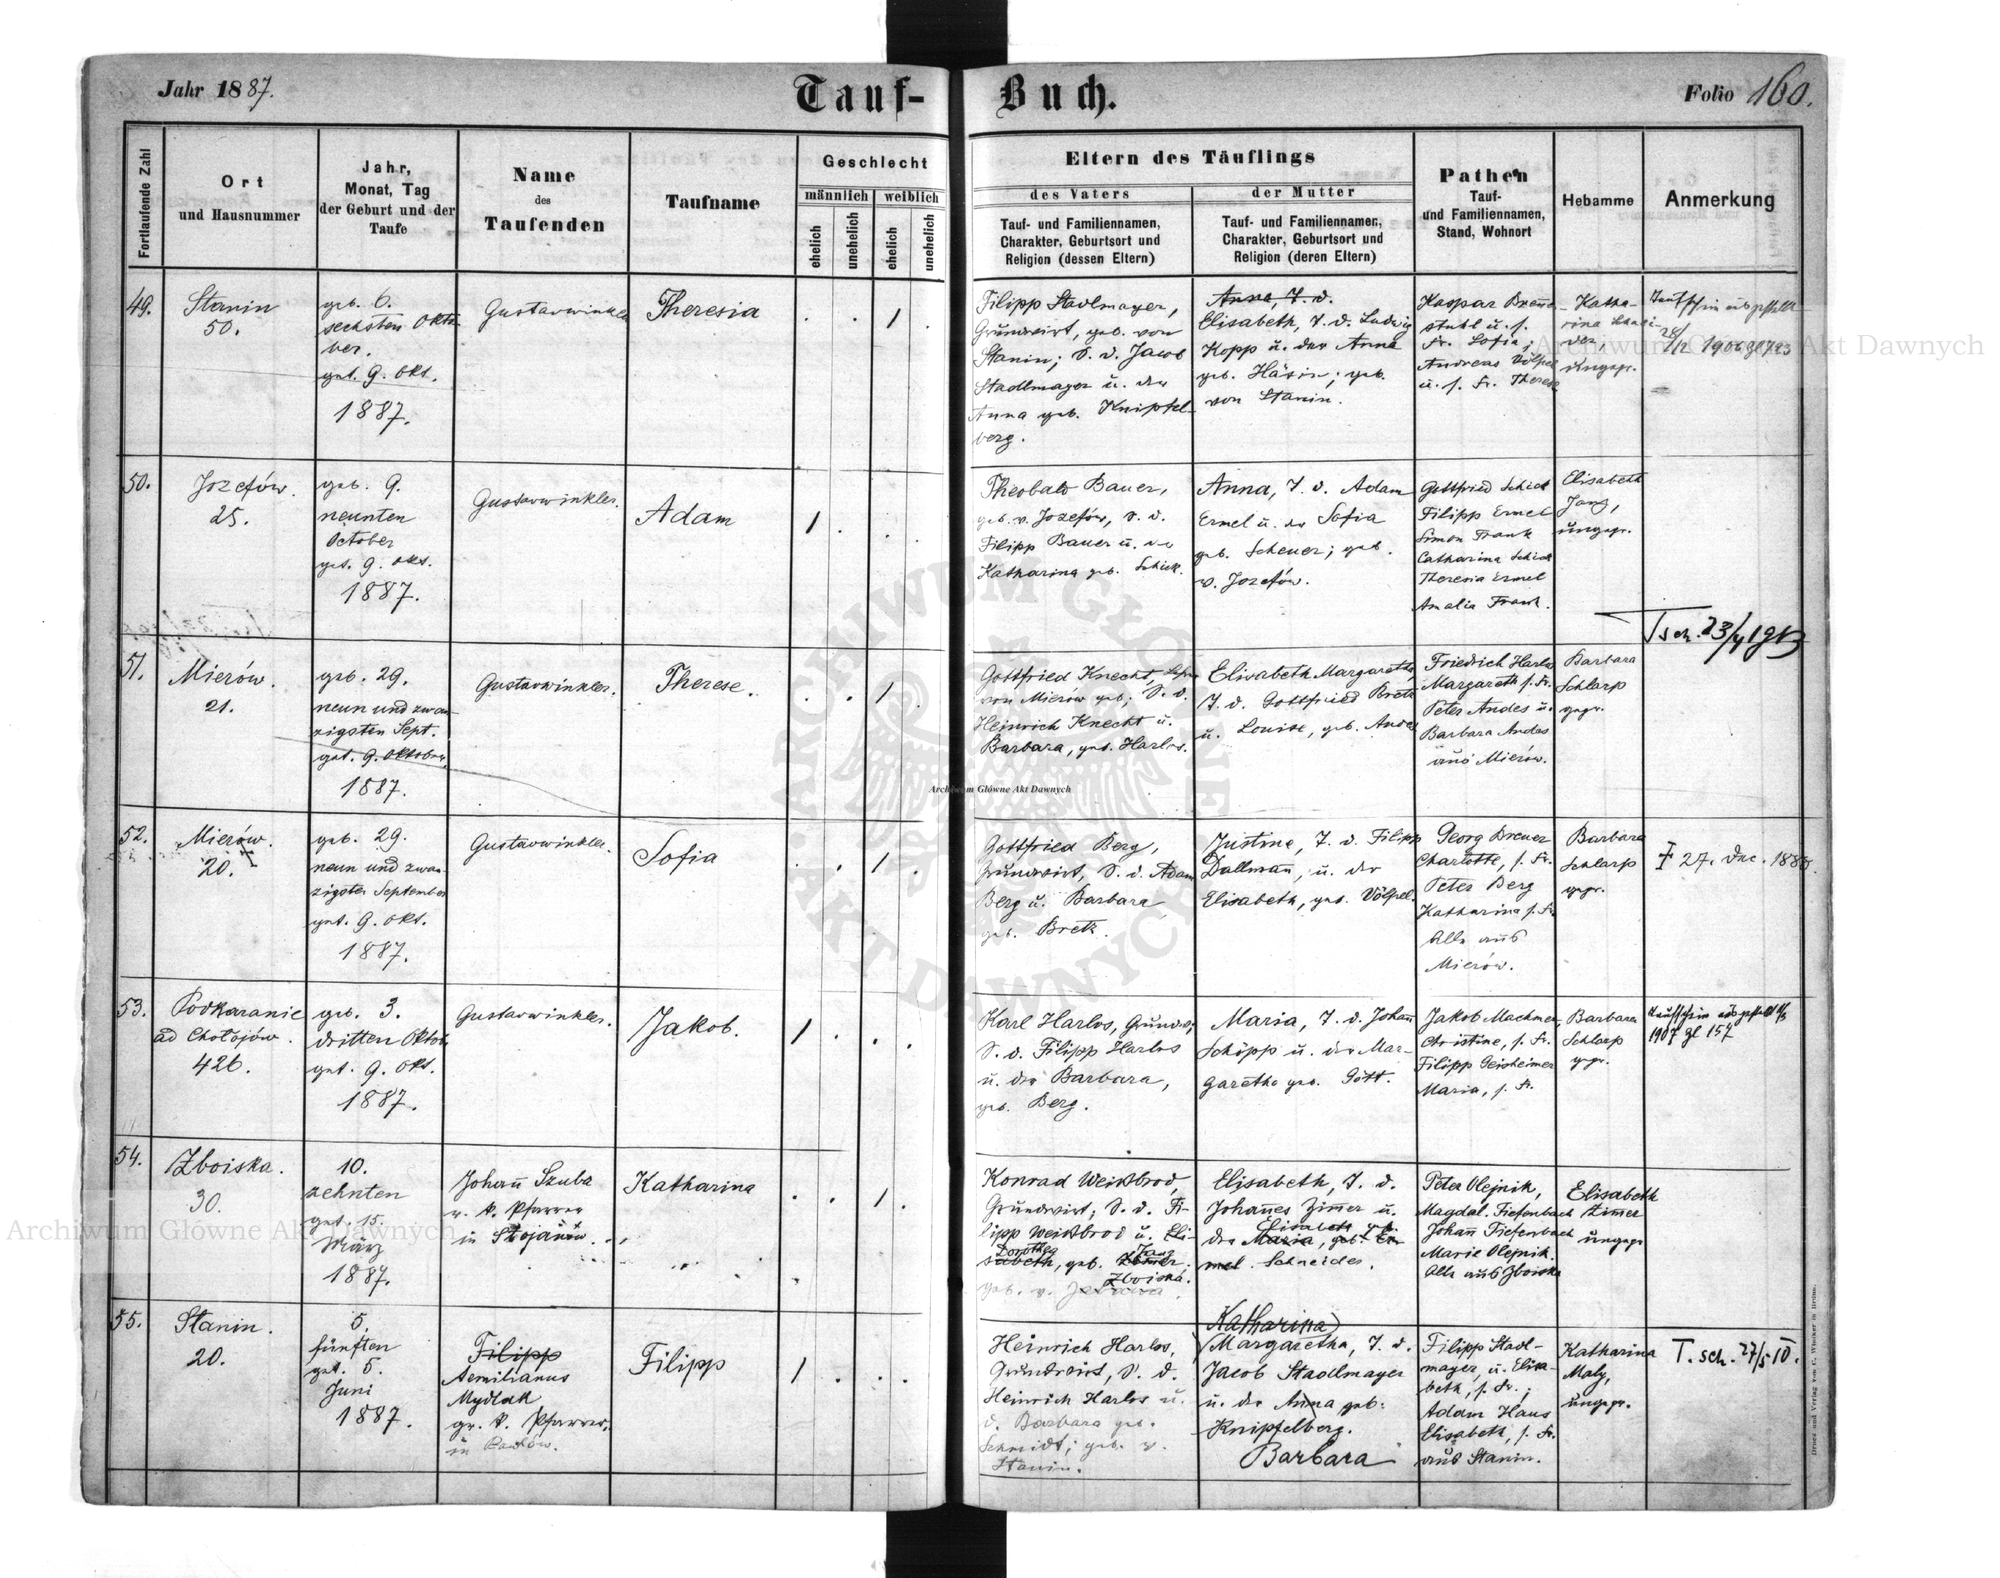 Jahr 1887.
Tauf-Buch.
Folio 160.
Fortlaufende Zahl
Ort
und Hausnummer
Jahr,
Monat, Tag
der Geburt und der
Taufe
Name
des
Taufenden
Taufname
Geschlecht
männlich
weiblich
ehelich
unehelich
ehelich
unehelich
Eltern des Täuflings
des Vaters
Tauf- und Familiennamen,
Charakter, Geburtsort und
Religion (dessen Eltern)
der Mutter
Tauf- und Familiennamen,
Charakter, Geburtsort und
Religion (deren Eltern)
Pathen
Tauf-
und Familiennamen,
Stand, Wohnort
Hebamme
Anmerkung
49.
Stanin
50.
geb. 6.
sechsten Okto-
ber.
get. 9. Okt.
1887.
Gustav Winkler
Theresia
Filipp Stadlmayer,
Grundwirt, geb. von
Stanin; S. d. Jacob
Stadlmayer u. der
Anna geb. Knipfel-
berg.
Anna, T. d.
Elisabeth, T. d. Ludwig
Kopp u. der Anna
geb. Häsin; geb.
von Stanin.
Kaspar
stuhl u. s.
Fr. Sofia;
Andreas Völpel
u. s. Fr. Therese
Katha-
rina
ungepr.
Taufschein ausgestellt
1906
50.
Jozefów.
25.
geb. 9.
neunten
October
get. 9. Okt.
1887.
Gustav Winkler.
Adam
Theobald Bauer,
geb. v. Jozefów, S. d.
Filipp Bauer u. der
Katharina geb. Schick.
Anna, T. d. Adam
Ermel u. der Sofia
geb. Scheuer; geb.
v. Jozefów.
Gottfried Schick
Filipp Ermel
Simon Frank
Catharina Schick
Theresia Ermel
Amalia Frank.
Elisabeth
Jang,
ungepr.
T sch. 23/4 1913
51.
Mierów.
21.
geb. 29.
neun und zwan-
zigsten Sept.
get. 9. Oktober.
1887.
Gustav Winkler.
Therese.
Gottfried Knecht,
von Mierów geb; S. d.
Heinrich Knecht u.
Barbara, geb. Harlos.
Elisabeth Margaretha,
T. d. Gottfried Bretz
u. Louise, geb. Andes
Friedrich Harlos
Margareth s. Fr.
Peter Andes u.
Barbara Andes
aus Mierów.
Barbara
Schlarp
gepr.
52.
Mierów.
20.
geb. 29.
neun und zwan-
zigsten September
get. 9. Okt.
1887.
Gustav Winkler.
Sofia
Gottfried Berg,
Grundwirt, S. d. Adam
Berg u. Barbara
geb. Bretz.
Justine, T. d. Filipp
Dallman, u. der
Elisabeth, geb. Völpel.
Georg Breuer
Charlotte, s. Fr.
Peter Berg
Katharina s. Fr.
Alle aus
Mierów.
Barbara
Schlarp
gepr.
‡ 27. Dec. 1888.
53.
Podkaranie
ad Chołojów.
426.
geb. 3.
dritten Oktob.
get. 9. Okt.
1887.
Gustav Winkler.
Jakob.
Karl Harlos, Grundw;
S. d. Filipp Harlos
u. der Barbara,
geb. Berg.
Maria, T. d. Johann
Schöpp u. der Mar-
garetha geb. Gött.
Jakob Machmer,
Christine, s. Fr.
Filipp Geisheimer
Maria, s. Fr.
Barbara
Schlarp
gepr.
Taufschein ausgestellt
1907 gl 157
54.
Zboiska.
30.
10.
zehnten
get. 15.
März
1887.
Johann Szuba
r. k. Pfarrer
in Stojanów.
Katharina
Konrad Weissbrod,
Grundwirt; S. d. Fi-
lipp Weissbrod u. Eli-
Dorothea
sabeth, geb. Zimmer;
Jang
Zboiska.
geb. v.
Elisabeth, T. d.
Johannes Zimmer u.
Elisabeth geb.
der Maria, geb. Er-
mel. Schneider.
Peter Olejnik,
Magdal. Tiefenbach
Johann Tiefenbach
Marie Olejnik.
Alle aus Zboiska
Elisabeth
Zimmer
ungepr
55.
Stanin.
20.
5.
fünften
get. 5.
Juni
1887.
Filipp
Aemilianus
Mydlak
gr. k. Pfarrer,
Filipp
Heinrich Harlos,
Grundwirt, S. d.
Heinrich Harlos u.
d. Barbara geb.
Schmidt; geb. v.
Stanin.
Katharina
Margaretha, T. d.
Jacob Stadlmayer
u. der Anna geb:
Knipfelberg.
Barbara
Filipp Stadl-
mayer, u. Elisa-
beth, s. Fr.;
Adam Haus
Elisabeth, s. Fr.
aus Stanin.
Katharina
Maly,
ungepr.
T. sch. 27/5 10.
Druck und Verlag von C. Winiker in Brünn.
Archiwum Główne Akt Dawnych
Archiwum Główne Akt Dawnych
Archiwum Główne Akt Dawnych
ARCHIWUM GŁÓWNE AKT DAWNYCH